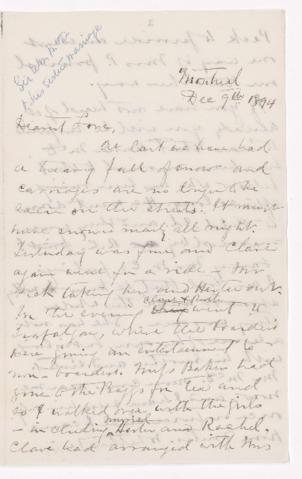 Montreal
Dec 9th 1894
Dearest Love,
At last we have had
a heavy fall of snow and
carriages are no longer to be
seen on the streets. It must
have snowed nearly all night.
Yesterday was fine and Clare
again went for a ride - Mr
Peck taking her and Hester out.
In the evening went to
Trafalgar, where the Boarders
were giving an entertainment to
non-boarders. Miss Baker had
gone to the Boys for tea and
so I walked over with the girls
- including Hester and Rachel.
Clare had arranged with Mrs